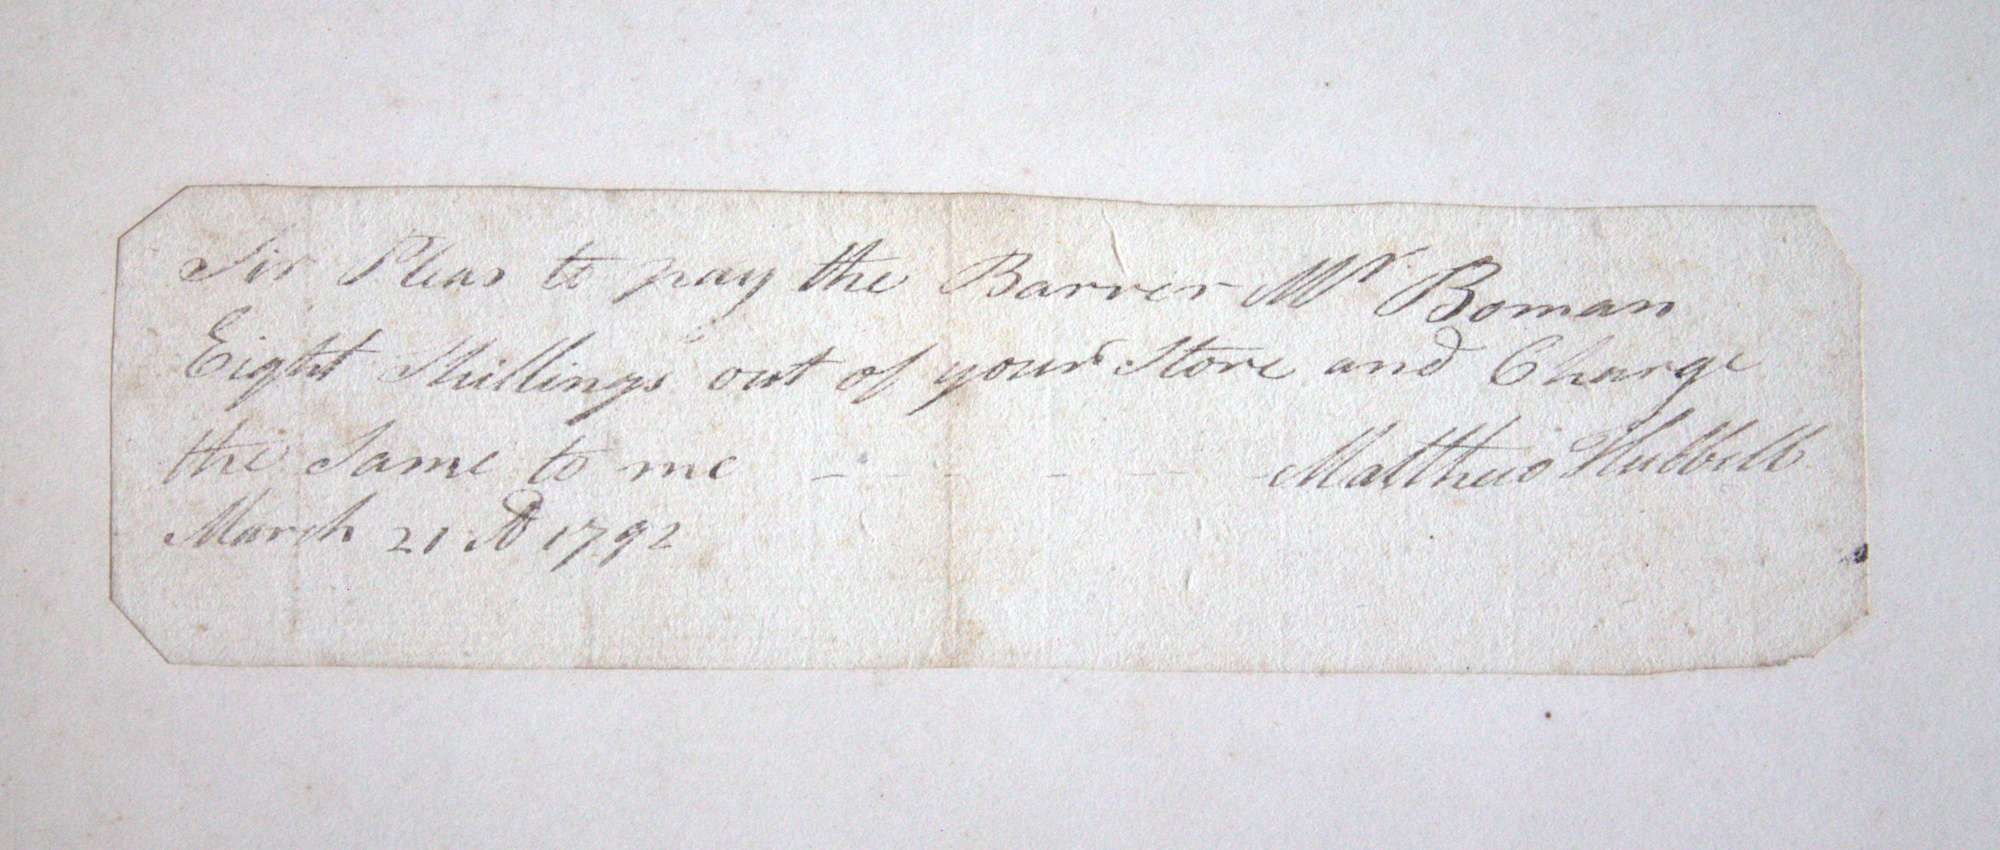 Sir Pleas to pay the Barrer Mr Boman
Eight Shillings out of your Store and Charge
the Same to me - - - - - - Matthew Hubbell
March 21 AD 1792